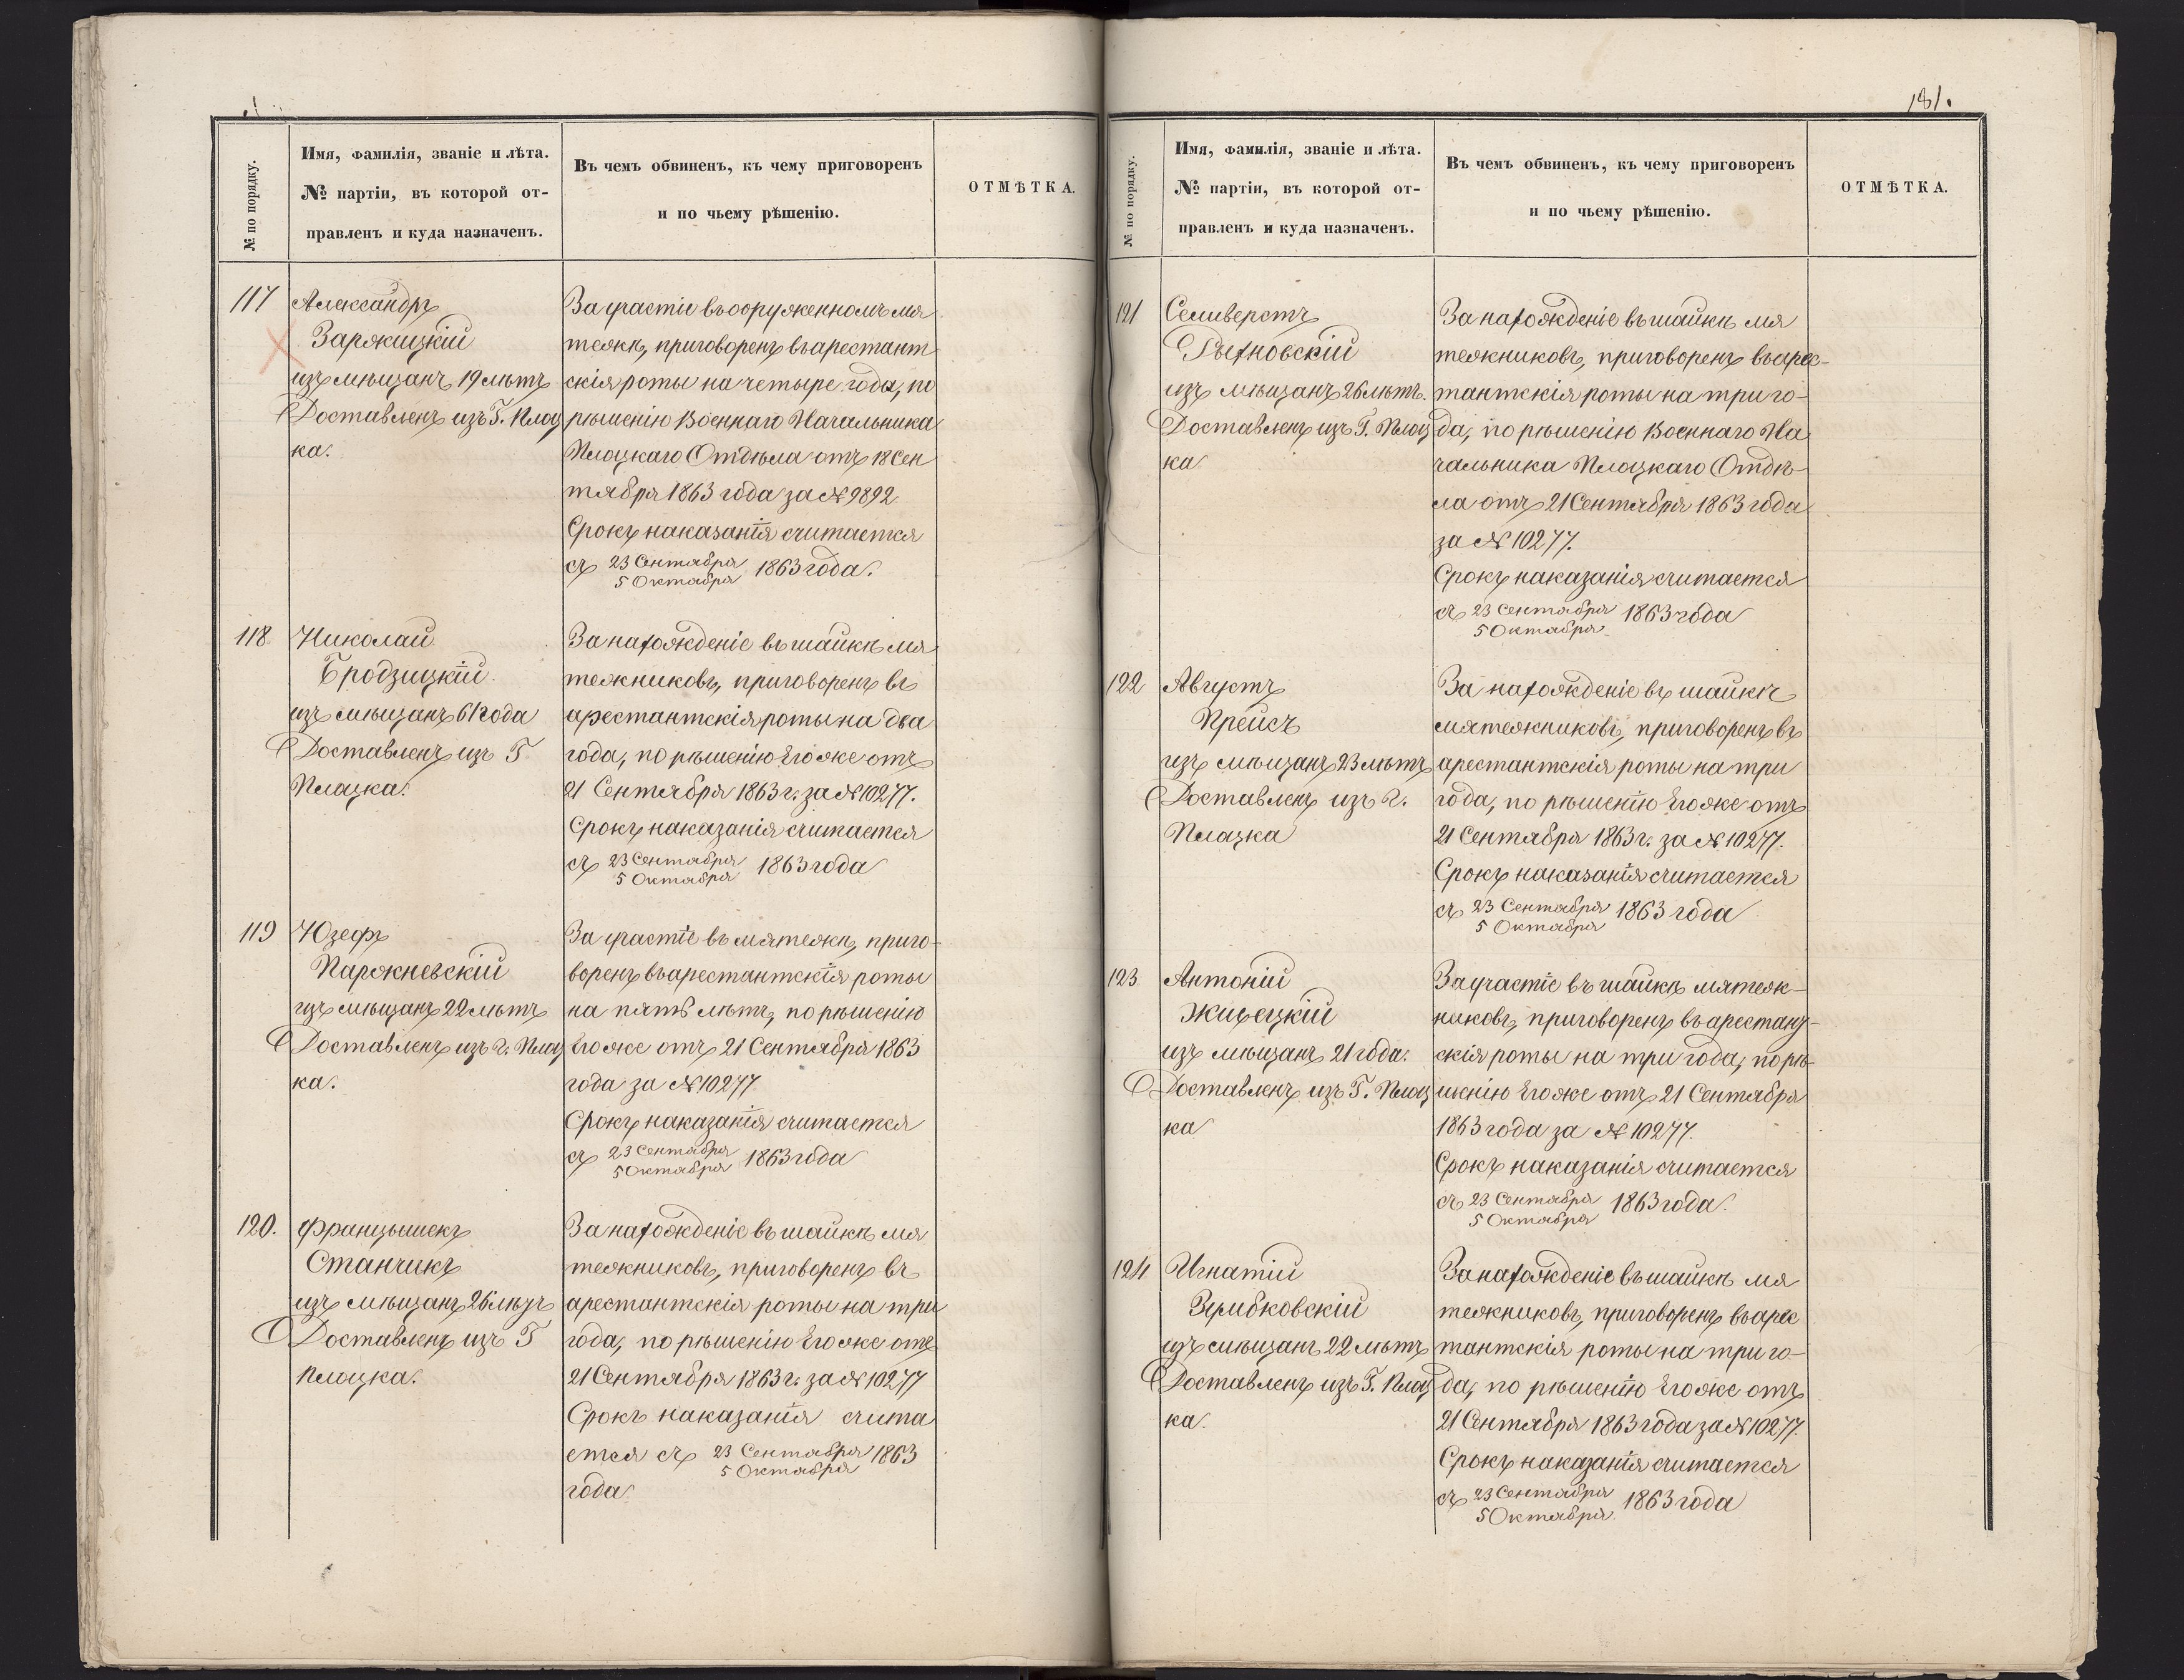 № по порядку.
Имя, фамилія, званіе и лѣта.
№ партіи, въ которой от-
правленъ и куда назначенъ.
Въ чемъ обвиненъ, къ чему приговоренъ
и по чьему рѣшенію.
ОТМѢТКА.
117
Александръ
Заржицкій
изъ мѣщанъ 19 лѣтъ
Доставленъ изъ Г. Плоц
ка.
За участіе въ вооруженномъ мя
тежѣ, приговоренъ въ арестант
скія роты на четыре года, по
рѣшенію Военнаго Начальника
Плоцкаго Отдѣла отъ 18 Сен
тября 1863 года за № 9892
Срокъ наказанія считается
съ 23 Сентября 1863 года.
5 Октября
118
Николай
Бродзицкій
изъ мѣщанъ 61 года
Доставленъ изъ Г
Плоцка.
За нахожденіе въ шайкѣ мя
тежниковъ, приговоренъ въ
арестантскія роты на два
года, по рѣшенію Его же отъ
21 Сентября 1863 г. за № 10277.
Срокъ наказанія считается
съ 23 Сентября 1863 года
5 Октября
119
Юзефъ
Паржневскій
изъ мѣщанъ 22 лѣтъ
Доставленъ изъ г. Плоц
ка.
За участіе въ мятежѣ, приго-
воренъ въ арестантскія роты
на пять лѣтъ, по рѣшенію
Его же отъ 21 Сентября 1863
года за № 10277
Срокъ наказанія считается
съ 23 Сентября 1863 года
5 Октября
120.
Францышекъ
Станчикъ
изъ мѣщанъ 26 лѣтъ
Доставленъ изъ Г
Плоцка.
За нахожденіе въ шайкѣ мя
тежниковъ, приговоренъ въ
арестантскія роты на три
года, по рѣшенію Его же отъ
21 Сентября 1863 г. за № 10277
Срокъ наказанія счита
ется съ 23 Сентября 1863
5 Октября
года
181.
№ по порядку.
Имя, фамилія, званіе и лѣта.
№ партіи, въ которой от-
правленъ и куда назначенъ.
Въ чемъ обвиненъ, къ чему приговоренъ
и по чьему рѣшенію.
ОТМѢТКА.
121
Селиверстъ
Рыхновскій
изъ мѣщанъ 26 лѣтъ.
Доставленъ изъ Г. Плоц
ка
За нахожденіе въ шайкѣ мя
тежниковъ, приговоренъ въ арес-
тантскія роты на три го-
да, по рѣшенію Военнаго На
чальника Плоцкаго Отдѣ-
ла отъ 21 Сентября 1863 года
за № 10277.
Срокъ наказанія считается
съ 23 Сентября 1863 года
5 Октября
122
Августъ
Прейсъ
изъ мѣщанъ 23 лѣтъ
Доставленъ изъ г.
Плоцка
За нахожденіе въ шайкѣ
мятежниковъ, приговоренъ въ
арестантскія роты на три
года, по рѣшенію Его же отъ
21 Сентября 1863 г. за № 10277.
Срокъ наказанія считается
съ 23 Сентября 1863 года
5 Октября
123
Антоній
изъ мѣщанъ 21 года.
Доставленъ изъ Г. Плоц
ка
За участіе въ шайкѣ мятеж-
никовъ, приговоренъ въ арестант-
скія роты на три года, по рѣ-
шенію Его же отъ 21 Сентября
1863 года за № 10277.
Срокъ наказанія считается
съ 23 Сентября 1863 года.
5 Октября
124
Игнатій
Зембковскій
изъ мѣщанъ 22 лѣтъ
Доставленъ изъ Г. Плоц
ка.
За нахожденіе въ шайкѣ мя
тежниковъ, приговоренъ въ арес
тантскія роты на три го-
да, по рѣшенію Его же отъ
21 Сентября 1863 года за № 10277.
Срокъ наказанія считается
съ 23 Сентября 1863 года
5 Октября